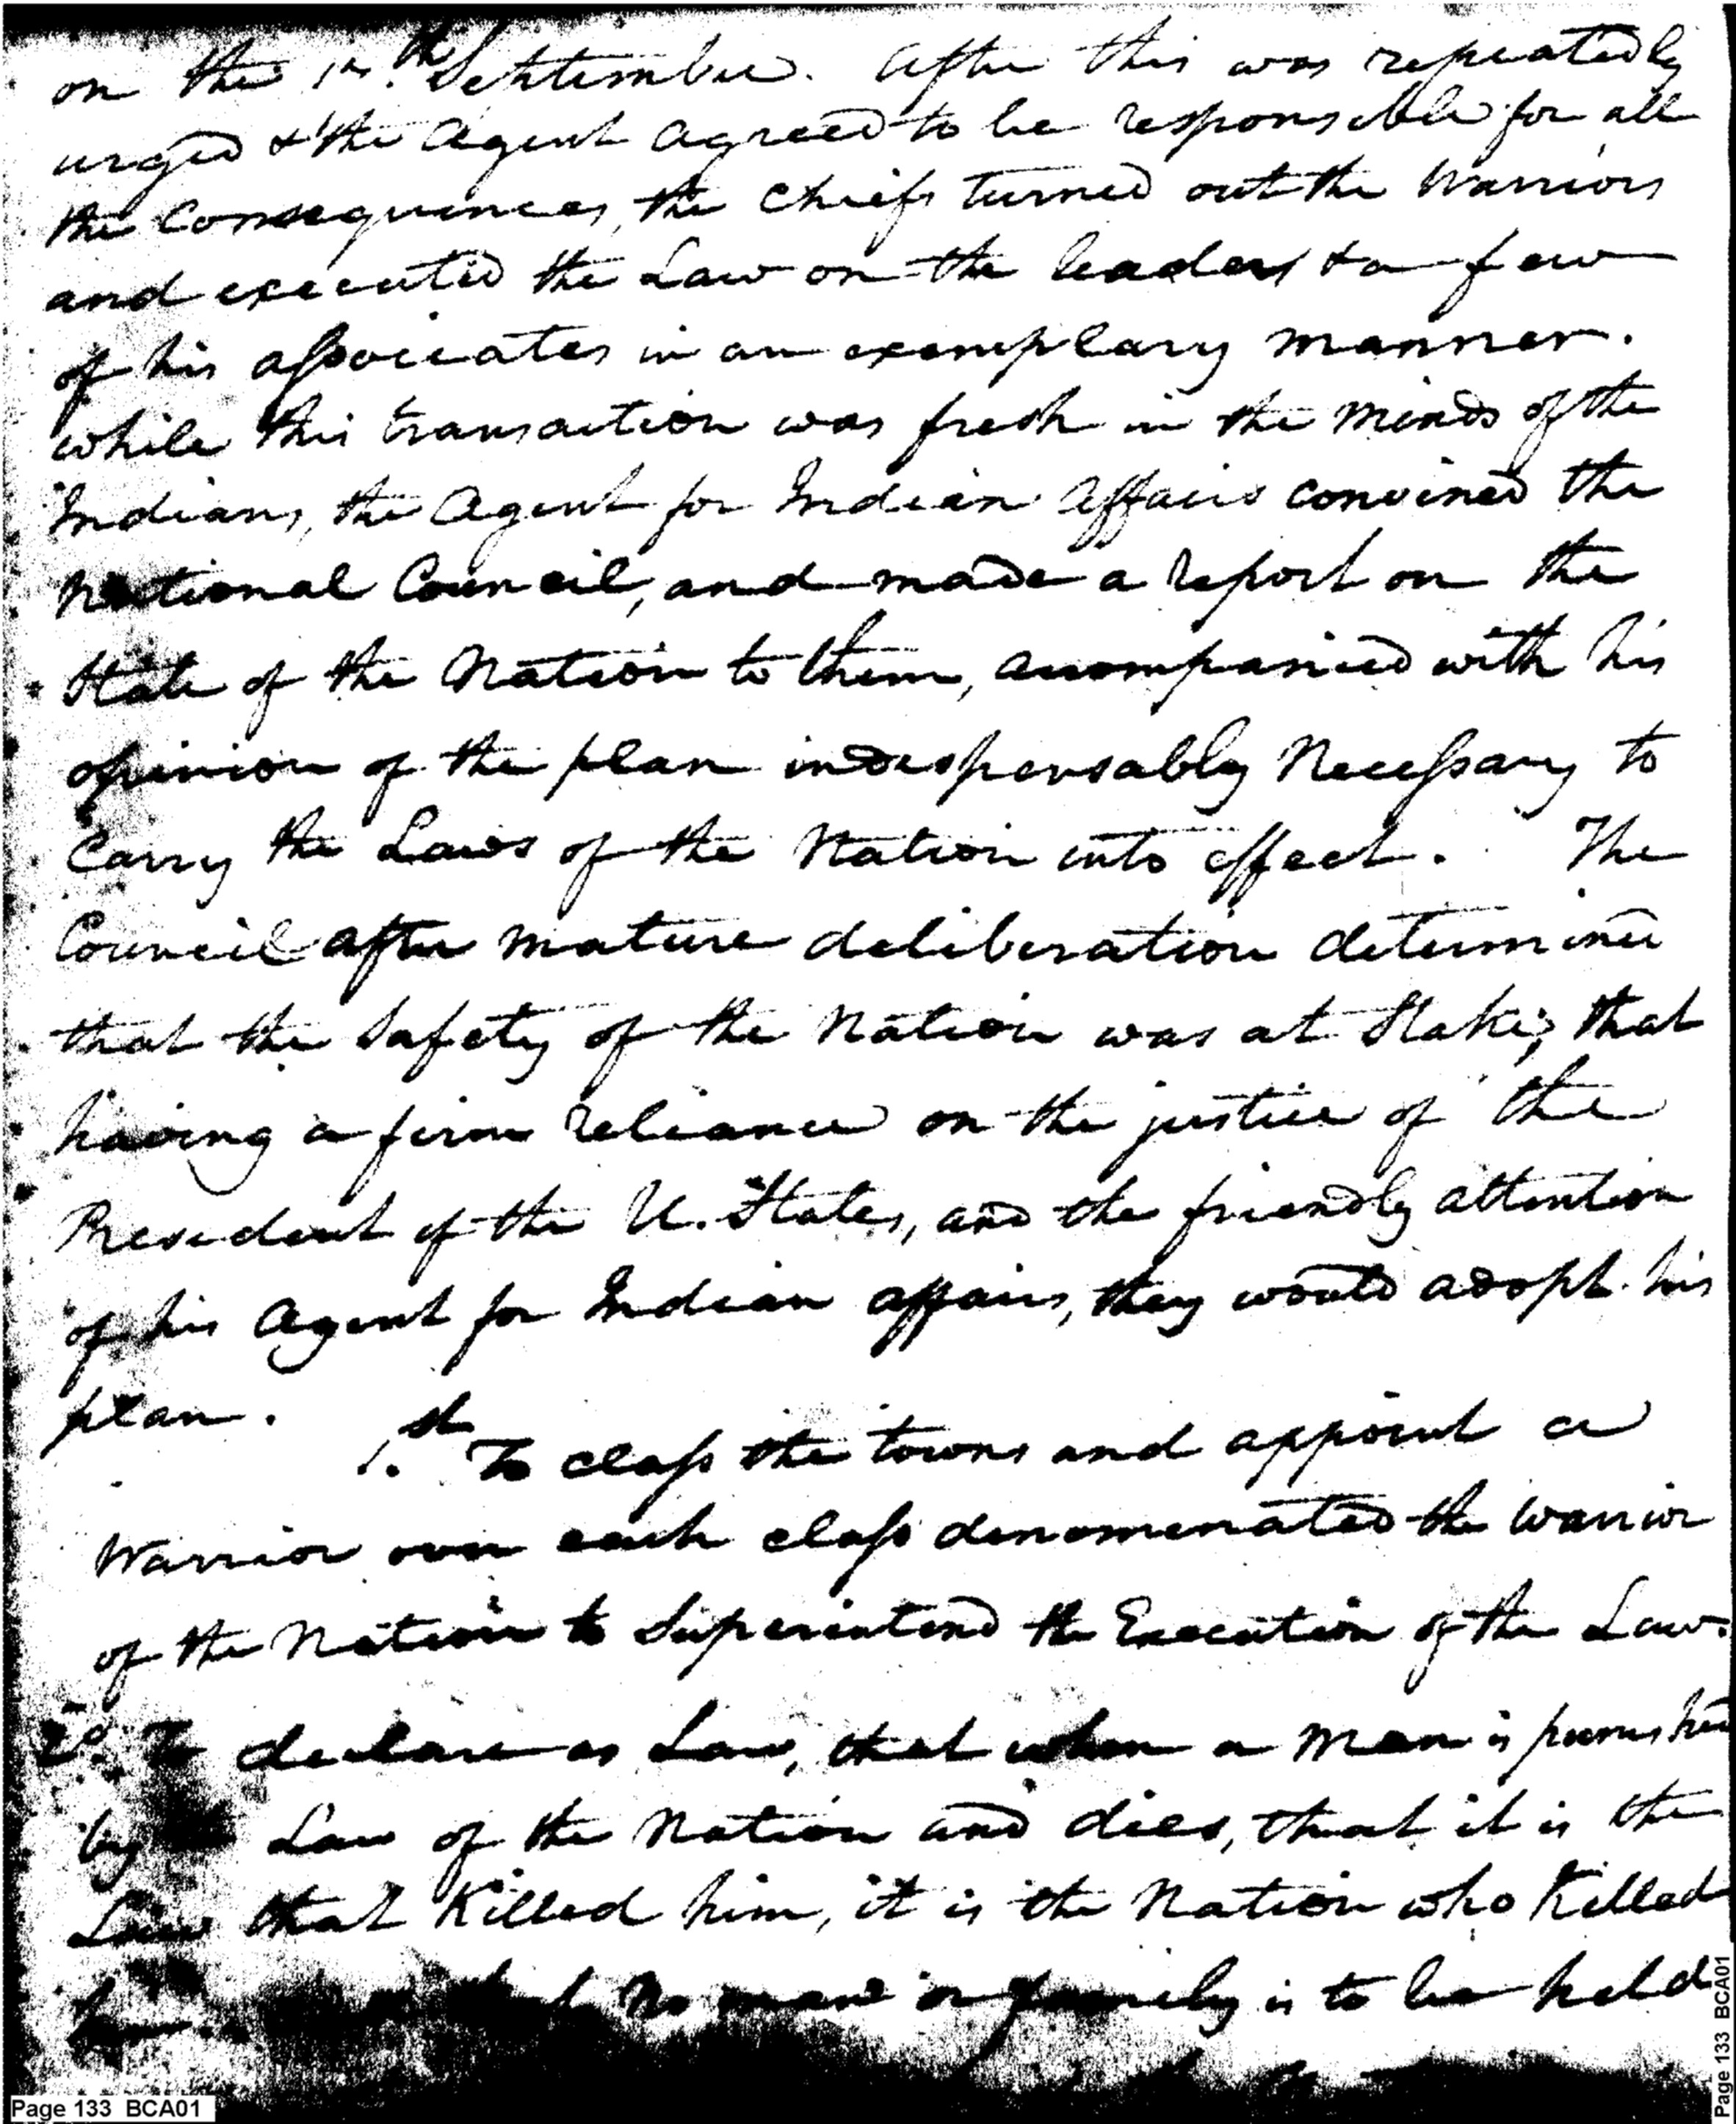 on the September. After this was repeatedly
urged & the Agent agreed to be responsible for all
the Consequences, the Chiefs turned out the Warriors
and executed the Law on the leader & a few
of his associates in an exemplary manner.
while this transaction was fresh in the minds of the
Indians, the Agent for Indian Affairs convened the
National Council, and made a report on the
State of the Nation to them, accompanied with his
opinion of the plan indespensably Necessary to
Carry the Laws of the Nation into effect. The
Council after mature deliberation determined
that the safety of the Nation was at Stake; that
having a firm reliance on the justice of the
President of the U. States, and the friendly attention
of his Agent for Indian affairs, they would adopt his
plan.
1.st To class the towns and appoint a
Warrior over each class denomenated the warrior
of the Nation to Superintend the Execution of the Law.
2d. To declare as Law, that when a man is punished
by Law of the Nation and dies, that it is the
Law that Killed him, it is the Nation who Killed
No man or family is to be held
Page 133 BCA01
Page 133 BCA01